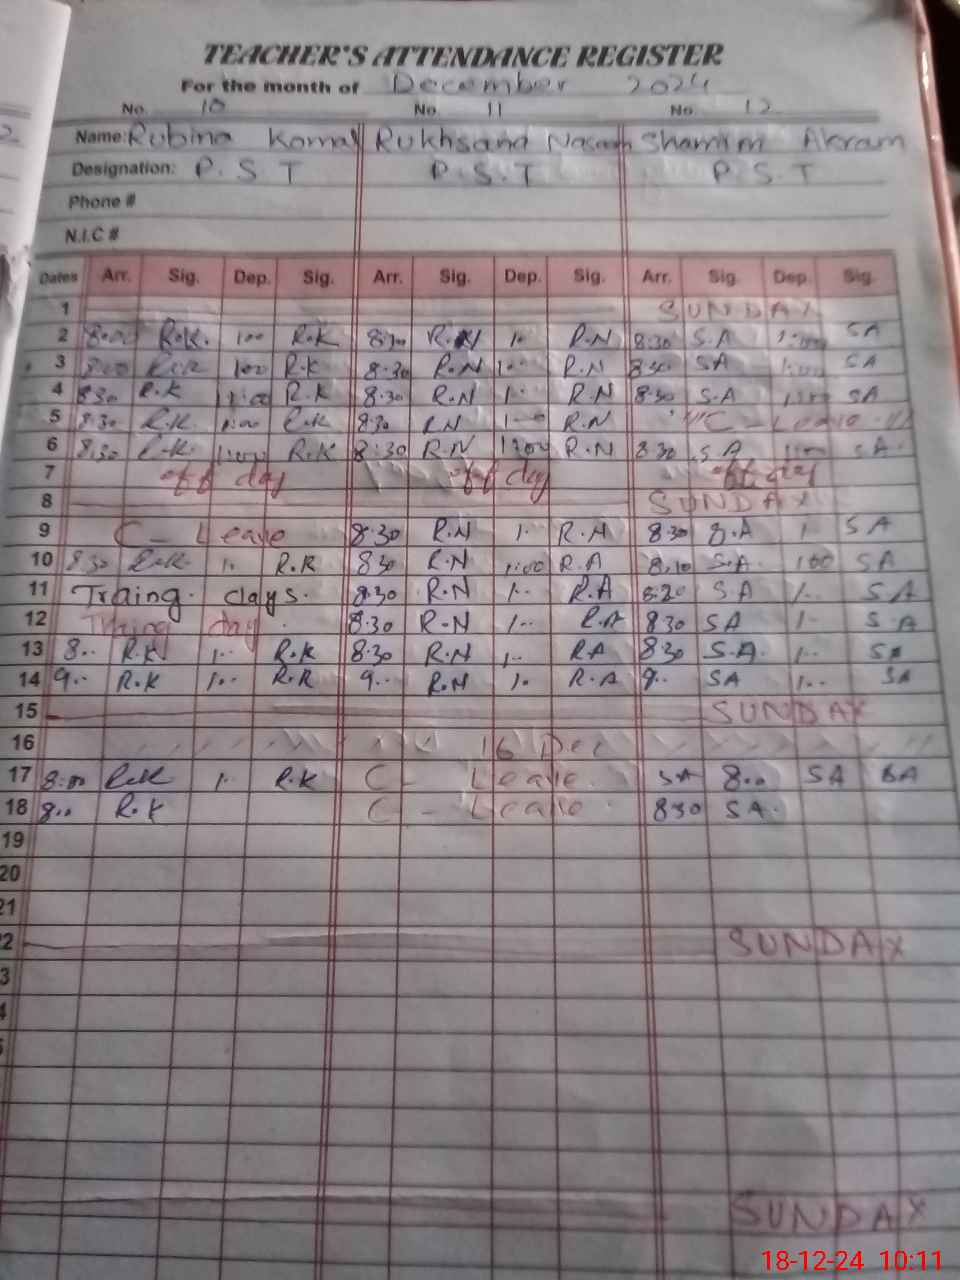 TEACHER'S ATTENDANCE REGISTER
For the month of December 2024
No. 10 No. 11 No. 12
Name: Rubina Komal Rukhsana Shamim Akram
Designation: P. S. T P. S. T P. S. T
Phone #
N.I.C #
Dates Arr. Sig. Dep. Sig. Arr. Sig. Dep. Sig. Arr. Sig. Dep. Sig.
1 SUNDAY
2 8:00 R.K. 1:00 R.K 8:30 R.N 1. R.N 8:30 S.A 1:00 SA
3 8:00 R.K 1:00 R.K 8:30 R.N 1:.. R.N 8:30 SA 1:00 SA
4 8:30 R.K 1:00 R.K 8:30 R.N 1:.. R.N 8:30 S.A 1:00 SA
5 8:30 R.K. 1:00 R.K 8:30 R.N 1:.. R.N "C - Leave "
6 8:30 R.K. 1:00 R.K 8:30 R.N 1:00 R.N 8:30 SA 1:00 SA.
7 off day off day off day
8 SUNDAY
9 C - Leave 8:30 R.N 1. R.N 8:30 S.A 1. SA
10 8:30 R.K. 1. R.K 8:30 R.N 1:00 R.A 8:10 S.A. 1:00 SA
11 Traing. days. 8:30 R.N 1.. R.A 8:20 S.A 1.. SA
12 Traing day. 8:30 R.N 1.. R.A 8:30 SA 1.. S.A
13 8.. R.K 1.. R.K 8:30 R.N 1.. RA 8:30 S.A. 1.. SA
14 9.. R.K 1.. R.K 9.. R.N 1.. R.A 9.. SA 1.. SA
15 SUNDAY
16 16 Dec
17 8:00 R.K 1.. R.K C - Leave. SA 8.. SA SA
18 8.. R.K C - Leave. 830 SA.
19
20
21
22 SUNDAY
3
4
5
SUNDAY
18-12-24 10:11